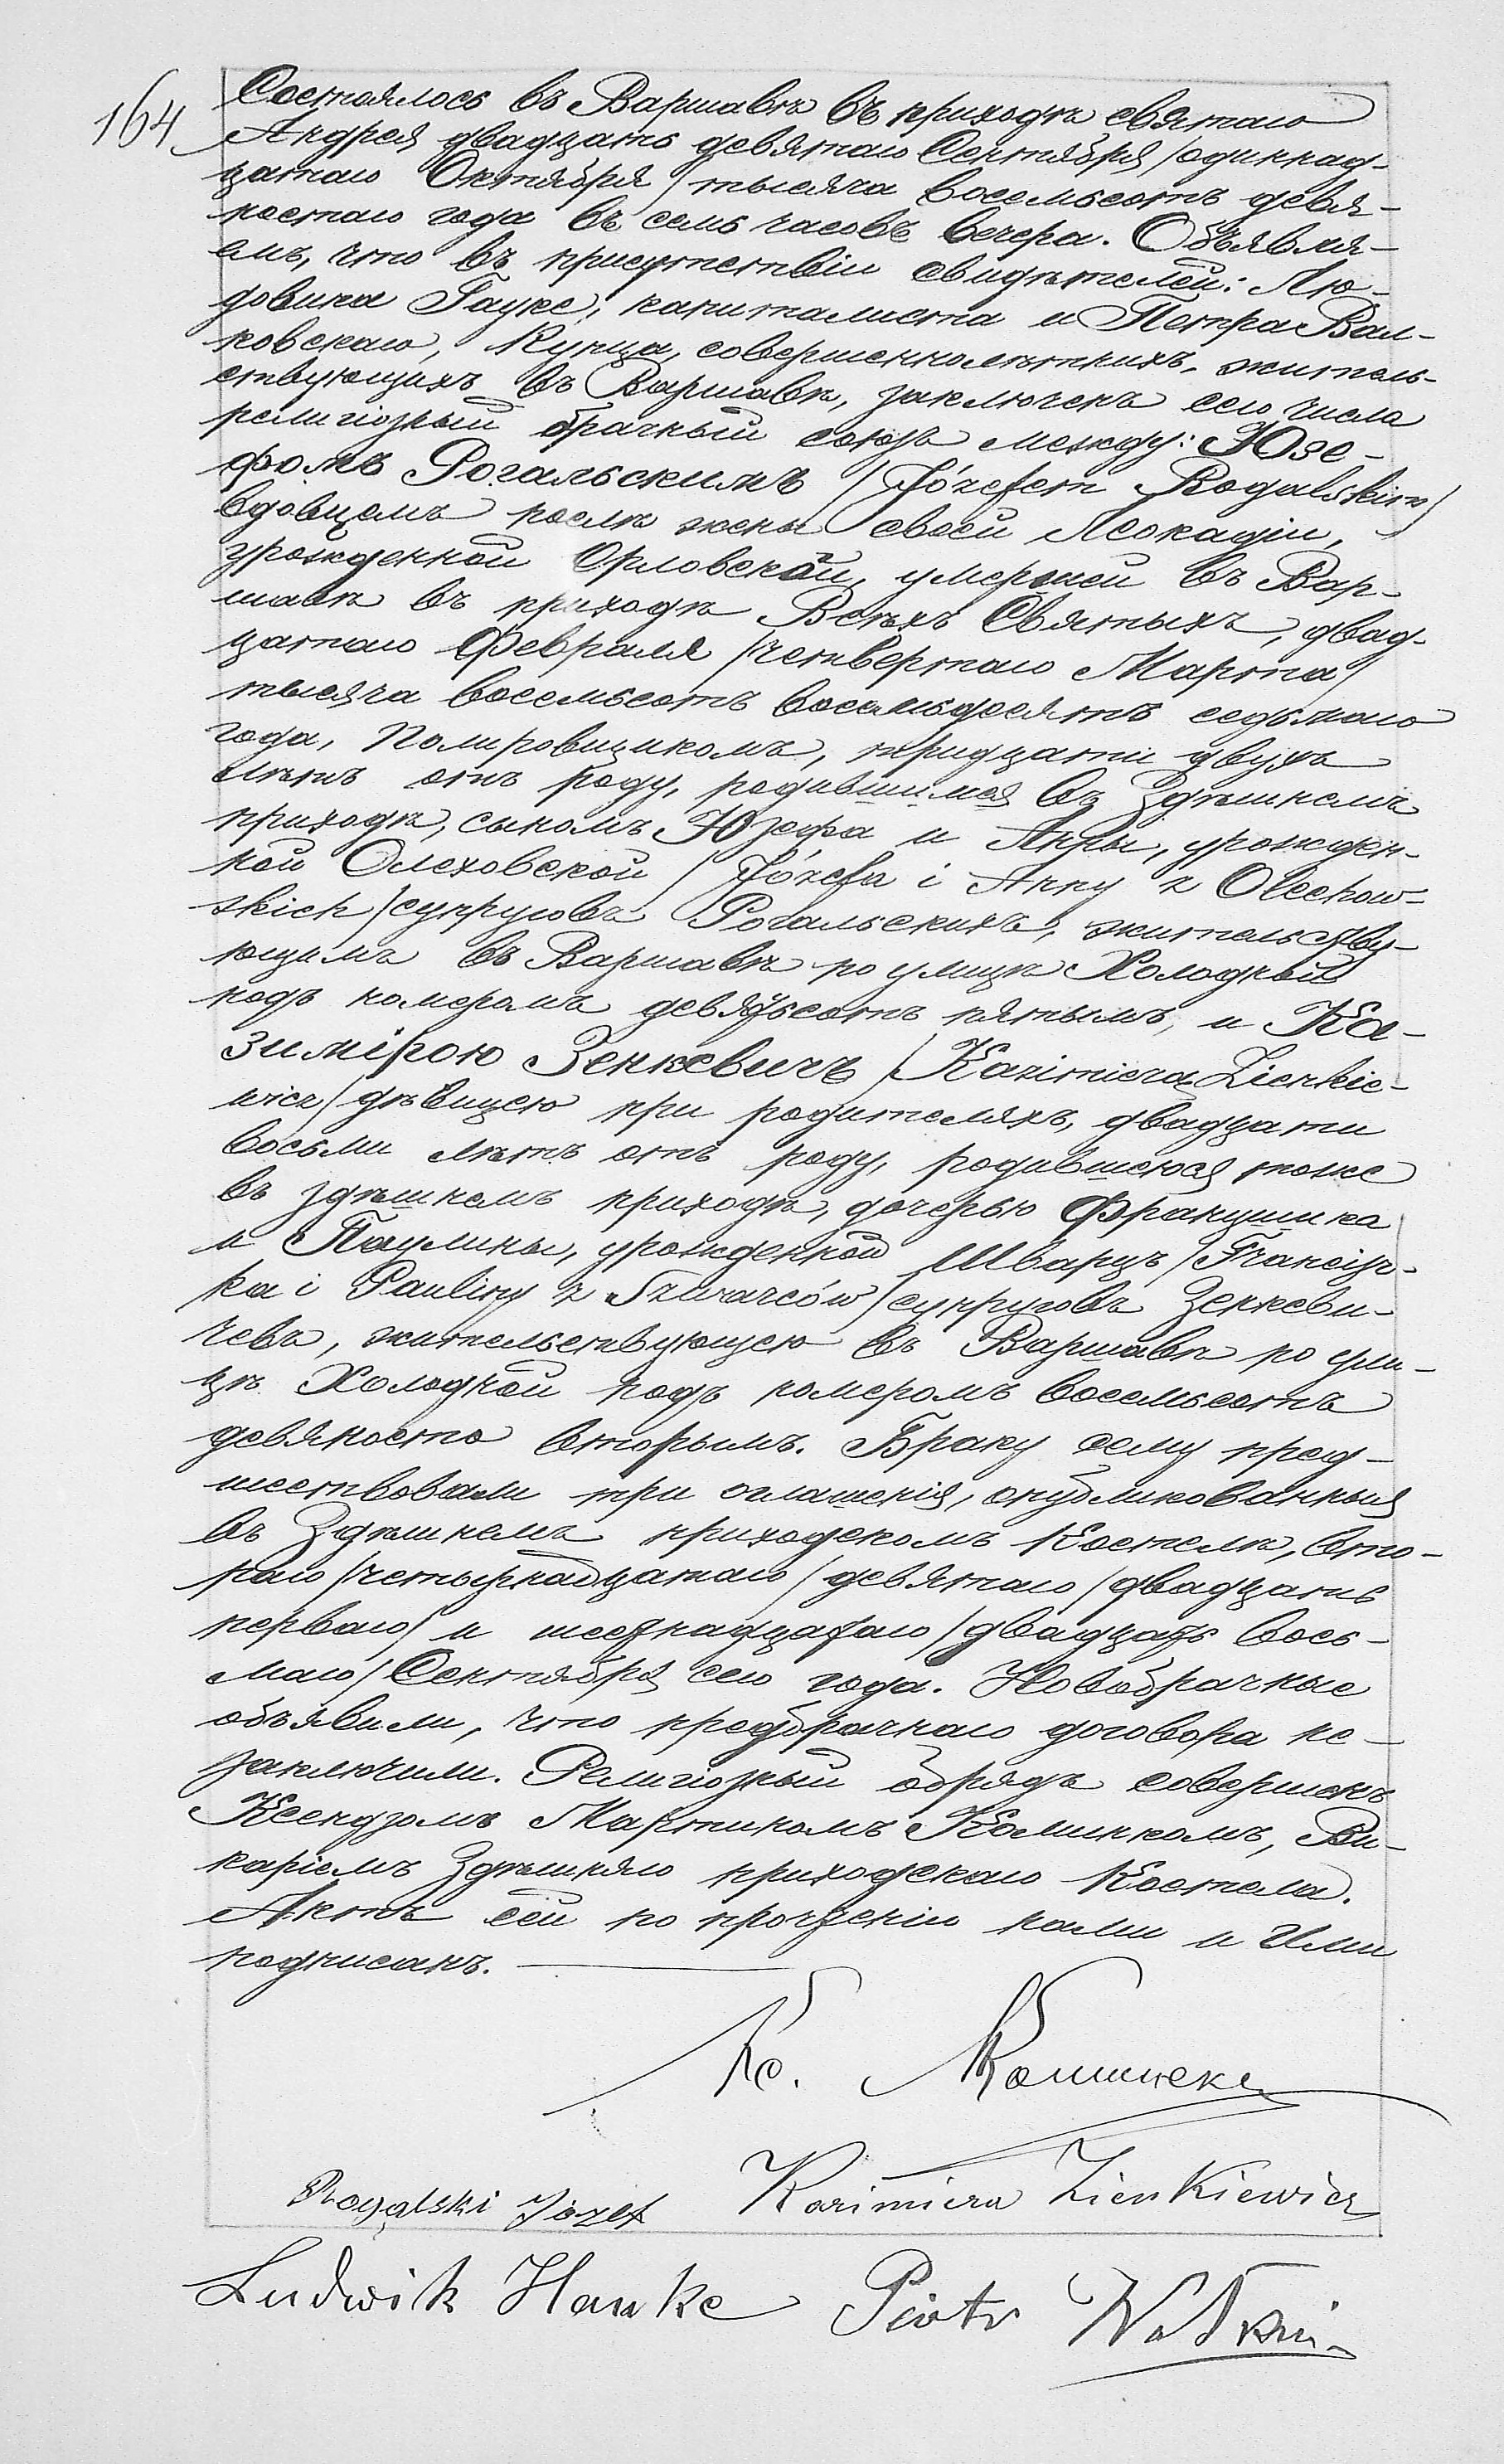 164
Состоялось въ Варшавѣ въ приходѣ святаго
Андрея двадцать девятаго Сентября /одиннад-
цатаго Октября/ тысяча восемьсотъ девя-
ностаго года въ семь часовъ вечера. Объявля-
емъ, что въ присутствіи свидѣтелей: Лю-
довика Гауке, капиталиста и Петра Вал-
ковскаго, Купца, совершеннолѣтнихъ, житель-
ствующихъ въ Варшавѣ, заключенъ сего числа
религіозный брачный союзъ между: Юзе-
фомъ Рогальскимъ /Józefem Rogalskim/
вдовцемъ послѣ жены своей Леокадіи,
урожденной Орловской, умершей въ Вар-
шавѣ въ приходѣ Всѣхъ Святыхъ, двад-
цатаго Февраля /четвертаго Марта/
тысяча восемьсотъ восемьдесятъ седьмаго
года, Полировщикомъ, тридцати двухъ
лѣтъ отъ роду, родившимся въ Здѣшнемъ
приходѣ, сыномъ Юзефа и Анны, урожден-
ной Олеховской /Józefa i Anny z Olechow-
skich/ супруговъ Рогальскихъ, жительству-
ющимъ въ Варшавѣ по улицѣ Холодной
подъ номеромъ девятьсотъ пятымъ, и Ка-
зимірою Зенкевичъ /Kazimierą Zienkie-
wicz/ дѣвицею при родителяхъ, двадцати
восьми лѣтъ отъ роду, родившеюся тоже
въ здѣшнемъ приходѣ, дочерью Францишка
и Паулины, урожденной Шварцъ /Francisz-
ka i Pauliny z Szwarców/ супруговъ Зенкеви-
чевъ, жительствующею въ Варшавѣ по ули-
цѣ Холодной подъ номеромъ восемьсотъ
девяносто вторымъ. Браку сему пред-
шествовали три оглашенія, опубликованныя
въ Здѣшнемъ приходскомъ Костелѣ, вто-
раго /четырнадцатаго/ девятаго /двадцать
перваго/ и шестнадцатаго /двадцать вось-
маго/ Сентября сего года. Новобрачные
объявили, что предбрачнаго договора не-
заключили. Религіозный обрядъ совершенъ
Ксендзомъ Мартиномъ Коминкомъ, Ви-
каріемъ Здѣшняго приходскаго Костела.
Актъ сей по прочтеніи нами и Ими
подписанъ.
Кс.
Rogalski Jozef Kazimiera Zienkiewicz
Ludwik Hauke Piotr